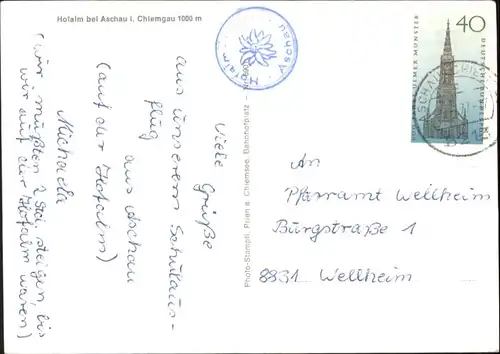 Hofalm bei Aschau i. Chiemgau 1000 m
Hofalm
Aschau
40
ULMER MÜNSTER
DEUTSCHE BUNDESPOST
Viele Grüße
aus unserem Schulaus-
flug
aus Aschau
(auf der Hofalm)
Michaela
(wir mußten 2 Std. steigen, bis
wir auf der Hofalm waren)
Photo-Stampfl, Prien a. Chiemsee, Bahnhofplatz
An
Pfarramt Wellheim
Burgstraße 1
8831 Wellheim